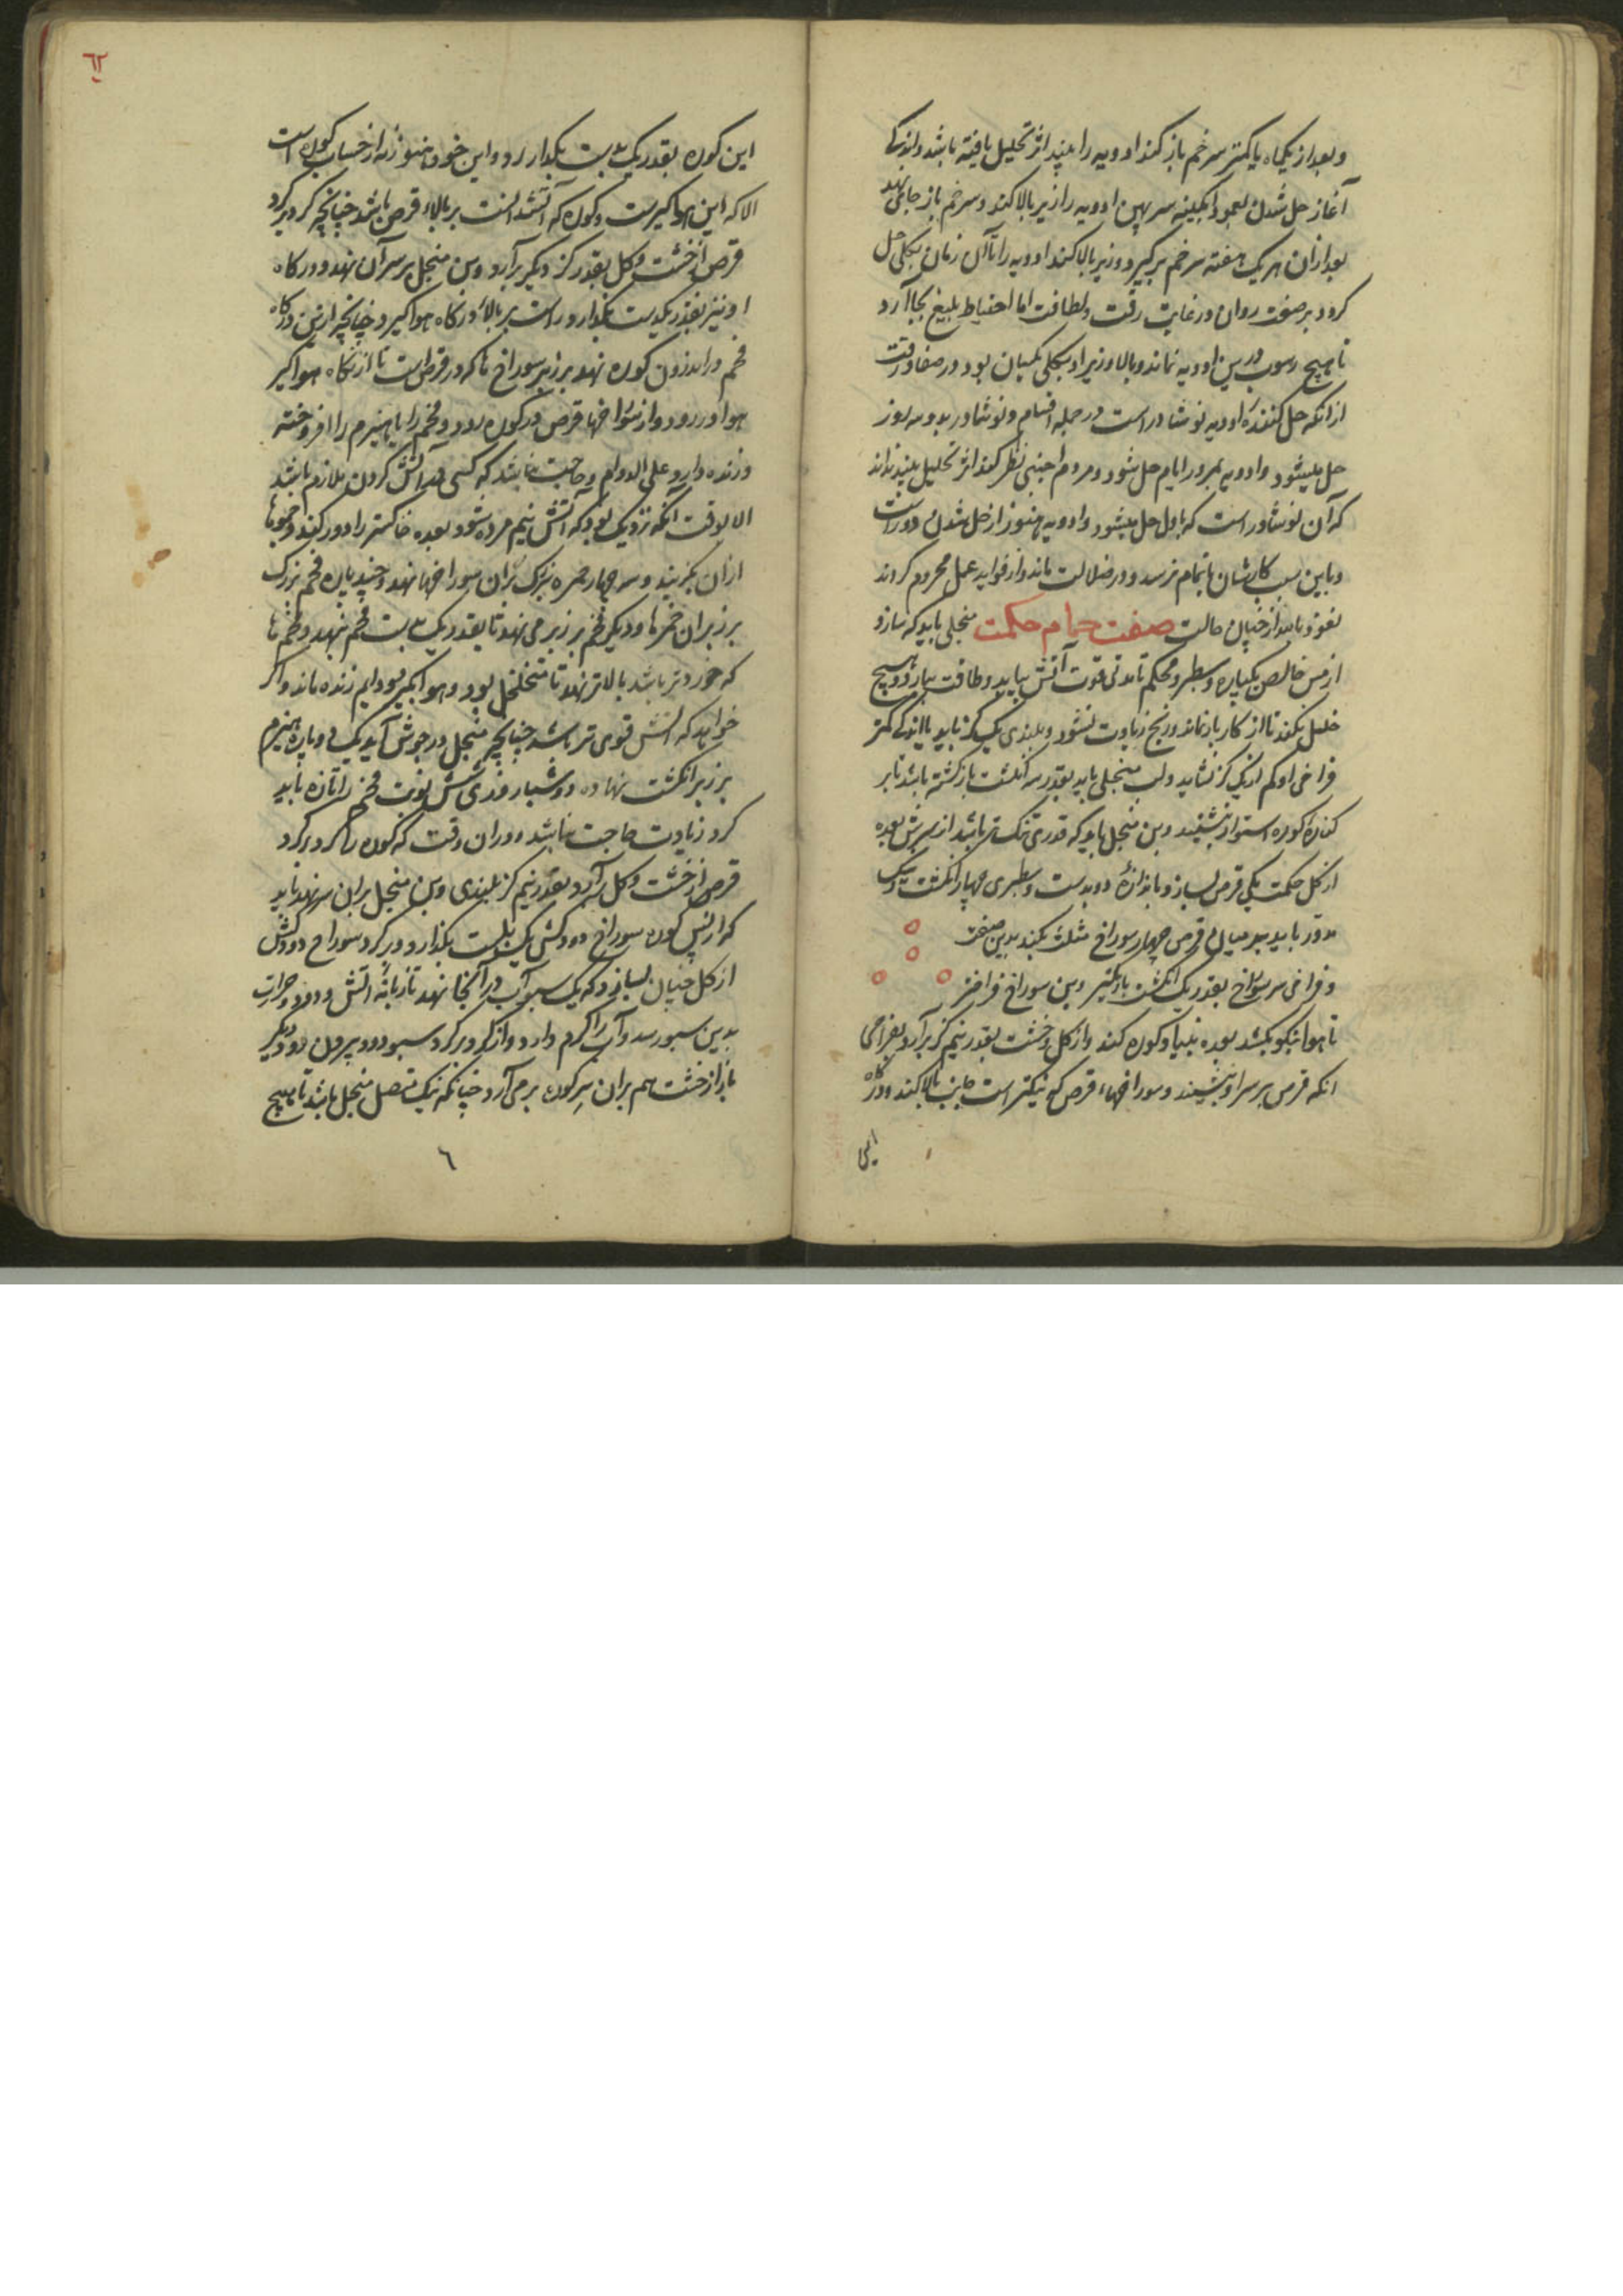 و بعد از یکماه یا کمتر سر خم باز کند ادویه را بیند اثر تحلیل یافته باشد و اندکی
آغاز حل شدن بعد ازین سر ادویه را زیر بالا کند و سر خم باز جای نهد
بعد از آن هر یک هفته سر خم برگیرد و زیر بالا کند ادویه را تا آن زمان بکلی حل
کردد بر صفت روان در غایت رقت و لطافت اما احتیاط بلیغ بجا آرد
تا هیچ رسوب درین ادویه نماند و بالا و زیر او بکلی یکسان بود در صفا و رقت
از انکه حل کننده ادویه نوشادر است در جمله اقسام و نوشادر بدو سه روز
حل میشود و ادویه بمرور ایام حل شود و مردم اجنبی نظر کند اثر تحلیل بیند نداند
که آن نوشادر است که اول حل میشود و ادویه هنوز از حل شدن دور است
و باین سبب کارشان باتمام نرسد و در ضلالت ماند و از فواید عمل محروم کردند
نعوذ بالله از چنان حالت صفت حمام حکمت منجلی باید که سازد
از مس خالص یکپاره و سطبر و محکم تا مدتی قوت آتش بیابد و طاقت بیارد و هیچ
خلل نکند تا از کار باز نماند و رنج زیادت نشود و بلندی یک کز باید یا اندکی کمتر
فراخی او کم از یک کز نشاید و لب منجلی باید بقدر سه انکشت بازکشته باشد تا بر
کناره کوره استوار بنشیند و بن منجل باید که قدری تنک تر باشد از سرش بعده
از کل حکمت یکی قرص بسازد باندازه دو بدست و سطبری چهار انکشت و نیک
مدور باید بر میان قرص چهار سوراخ مثلث بکند بدین صفت
و فراخی سر سوراخ بقدر یک انکشت باریکتر و بن سوراخ فراختر
تا هوا نیکو بکشد بعده بنیاد کوره کند و از کل و خشت بقدر نیم کز برآرد بفراخی
انکه قرص بر سر او بنشیند و سوراخهاء قرص که تنکتر است جانب بالا کند و درگاه
این
٦٢
این کوره بقدر یک بدست بگذارد و این خود هنوز نه از حساب کوره است
الا که این هواکیر است و کوره که آتشدانست بر بالاء قرص باشد چنانچه کرد بر کرد
قرص از خشت و کل بقدر کز دیکر برآرد و بن منجل بر سر آن نهد و درگاه
او نیز بقدر یکدست بگذارد راست بر بالاء درگاه هواکیر و چنانچه ازین درگاه
فحم در اندرون کوره نهد بر زبر سوراخ ها که در قرص است تا از درگاه هواکیر
هوا در رود و از سوراخها قرص در کوره رود و فحم را یا هیزم را افروخته
و زنده دارد علی الدوام و حاجت نباشد که کسی در آتش کردن ملازم باشد
الا بوقت آنکه نزدیک بود که آتش نیم مرده شود بعده خاکستر را دور کند و جوبها
ازان بکریند و سه چهار خمره بزرک بران سوراخها نهد و چند پاره فحم بزرک
بر زبر آن خمرها و دیکر فحم بر زبر می نهد تا بقدر یک بدست فحم بنهد و فحم ها
که خوردتر باشد بالاتر نهد تا متخلخل بود و هوا بکیرد و دایم زنده ماند و اکر
خواهد که آتش قوی تر باشد چنانچه منجل در جوش آید یک دو پاره هیزم
بر زبر انکشت نهاده و در شبانروزی شش نوبت فحم را تازه باید
کرد زیادت حاجت نباشد و در آن وقت که کوره را کرد بر کرد
قرص از خشت و کل برآرد بقدر نیم کز بلندی و بن منجل بر آن سر نهد باید
که از پس کوره سوراخ دودکش یک بدست بگذارد و بر کرد سوراخ دودکش
از کل چنان بسازد که یک سبو آب در آنجا نهد تا زبانه آتش و دود و حرارت
بدین سبو رسد و آب را کرم دارد و از کرد بر کرد سبو دود بیرون رود و دیکر
باز از خشت هم بران سر کوره بر می آرد چنانکه نیک متصل منجل باشد تا هیچ
٦